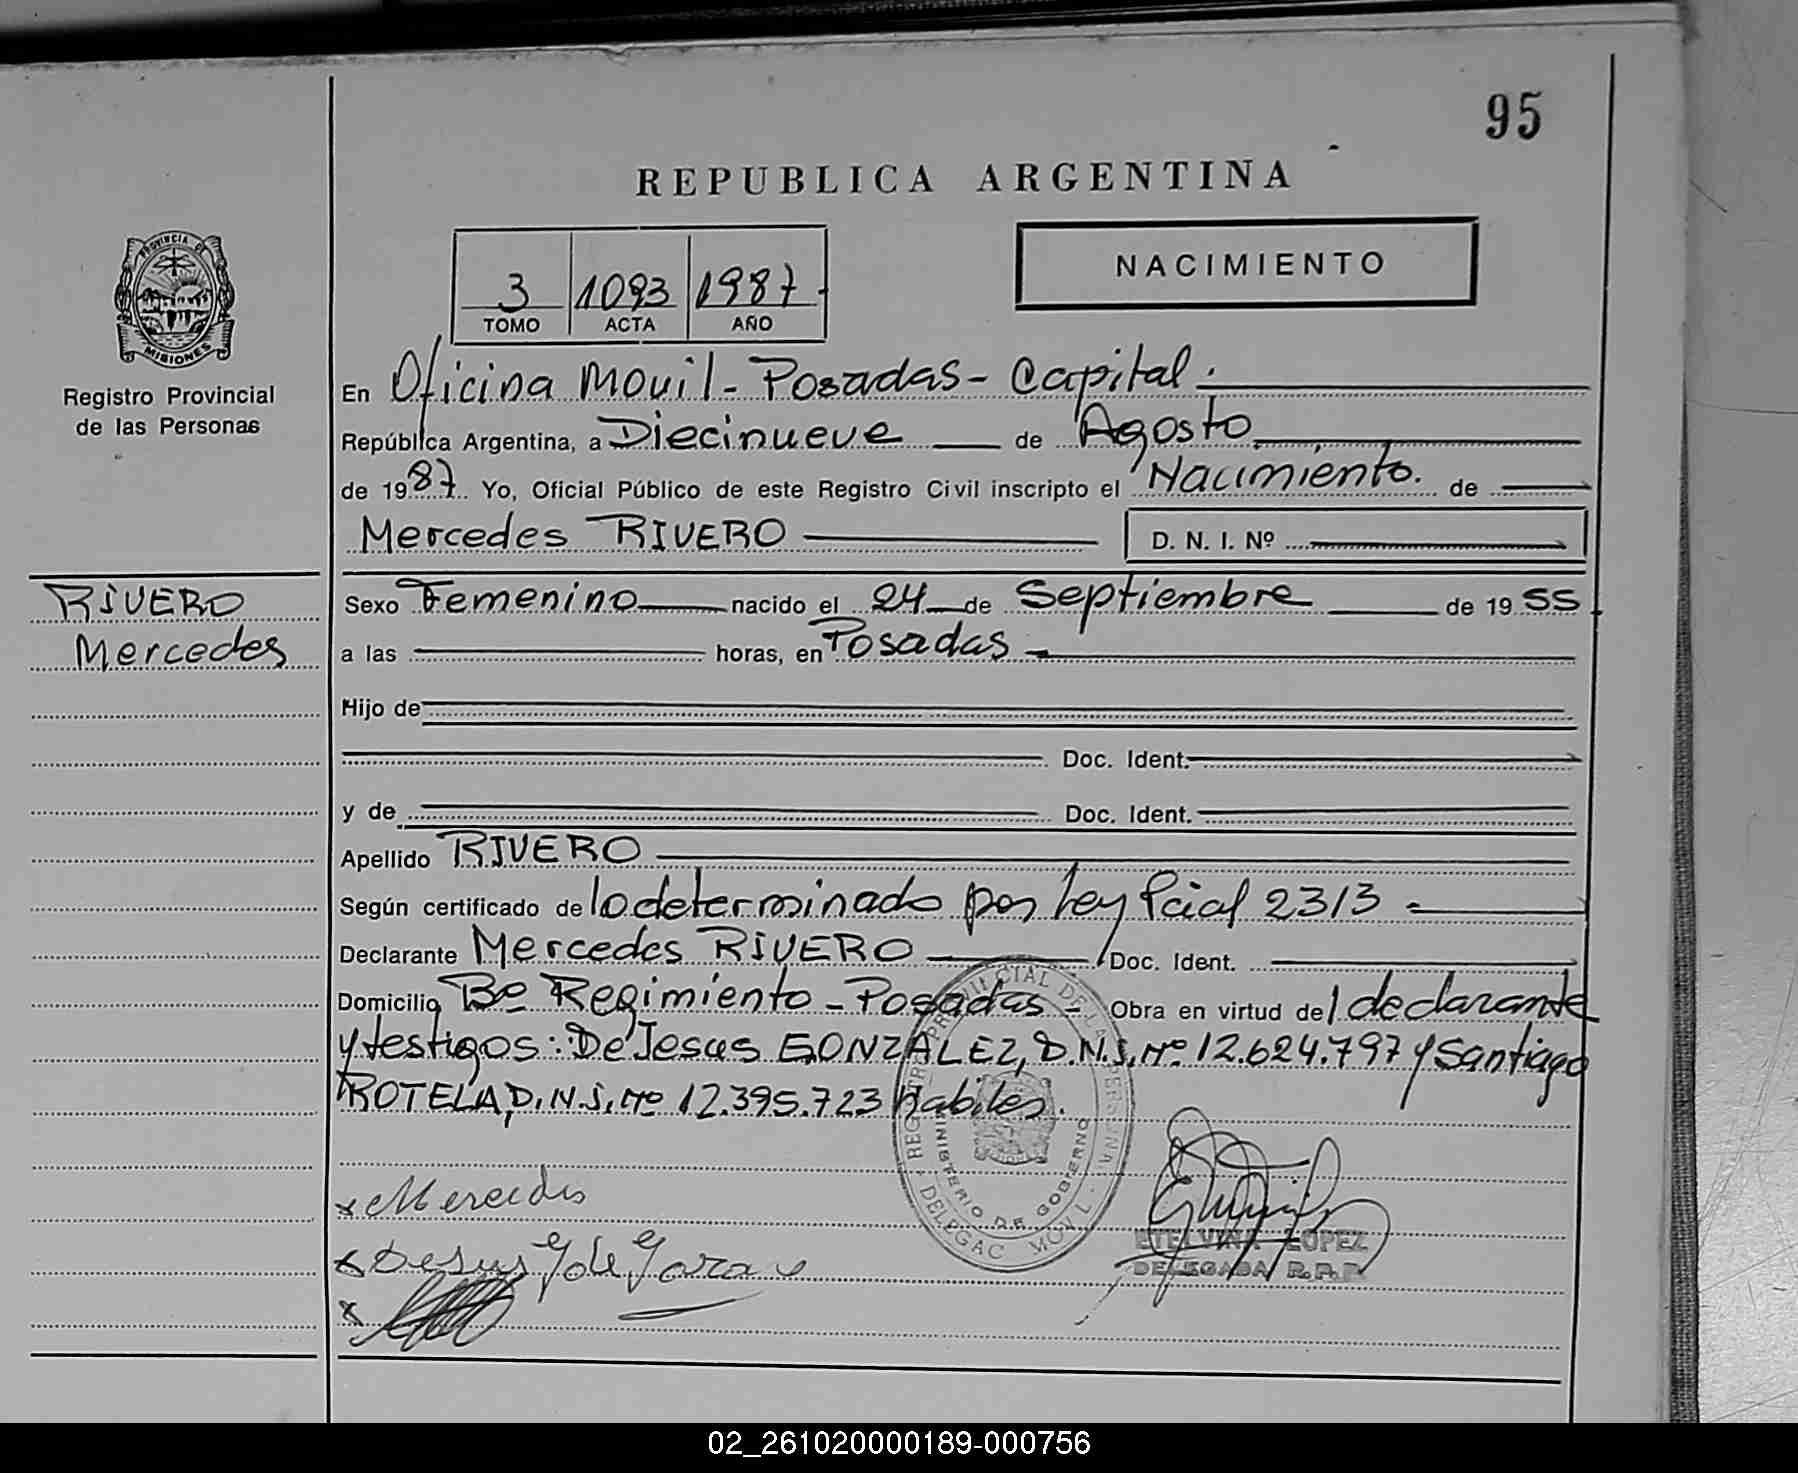 95
REPUBLICA ARGENTINA
NACIMIENTO
3 1093 1987
TOMO ACTA AÑO
PROVINCIA DE MISIONES
Registro Provincial
de las Personas
En Oficina Movil - Posadas - Capital.
República Argentina, a Diecinueve de Agosto
de 1987. Yo, Oficial Público de este Registro Civil inscripto el Nacimiento. de
Mercedes RIVERO D. N. I. Nº
RIVERO
Mercedes
Sexo Femenino nacido el 24 de Septiembre de 1955
a las horas, en Posadas
Hijo de
Doc. Ident.
y de Doc. Ident.
Apellido RIVERO
Según certificado de lo determinado por Ley Pcial 2313
Declarante Mercedes RIVERO Doc. Ident.
Domicilio Bº Regimiento - Posadas - Obra en virtud del declarante
y testigos: De Jesus GONZALEZ, D.N.I. Nº 12.624.797 y Santiago
ROTELA, D.N.I. Nº 12.395.723 Habiles.
REGISTRO PROVINCIAL DE LAS PERSONAS
MINISTERIO DE GOBIERNO
DELEGAC MOVIL
x Mercedes
x Desus G de
x
ETELVINA LOPEZ
DELEGADA R.P.P.
02_261020000189-000756